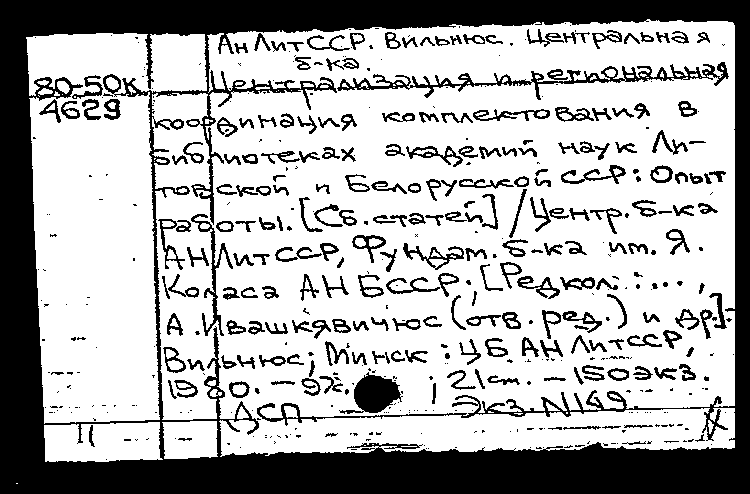 АН ЛитССР. Вильнюс. Центральная
б-ка.
80-50к Централизация и региональная
4629
координация комплектования в
библиотеках академий наук Ли-
товской и Белорусской ССР: Опыт
работы. [Сб. статей] / Центр. б-ка
АН ЛитССР, Фундам. б-ка им. Я.
Коласа АН БССР; [Редкол.: ...,
А. Ивашкявичюс (отв. ред.) и др.].-
Вильнюс; Минск: ЦБ АН ЛитССР,
1980. - 97с. ; 21см. - 150экз.
ДСП. Экз. N149.